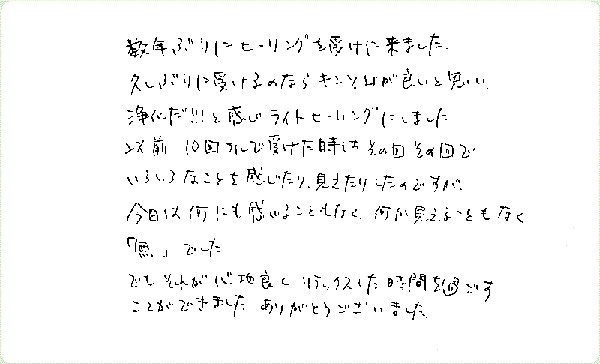 数年ぶりにヒーリングを受けに来ました。
久しぶりに受けるのなら 何が良いと思い、
浄化だ!!!と感じライトヒーリングにしました
以前 10回 受けた時は その回 その回で
いろいろなことを感じたり、見えたりしたのですが、
今日は何にも感じることもなく、何か見えることもなく
「無」でした
でも それが心地良く リラックスした時間を過ごす
ことができました ありがとうございました。